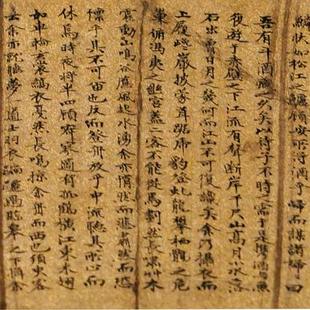 鱗狀如松江之鱸顧安所得酒乎歸而謀諸婦曰
吾有斗酒藏之久矣以待子不時之需于是攜酒與魚
復遊于赤壁之下江流有聲斷岸千尺山高月小水落
石出曾日月之幾何而江山不可復識矣余乃攝衣而
上履巉巖披蒙茸踞虎豹登虬龍攀棲鶻之危
巢俯馮夷之幽宮蓋二客不能從焉劃然長嘯草木
震動山鳴谷應風起水湧余亦悄然而悲肅然而恐
凜乎其不可留也反而登舟放乎中流聽其所止而
休焉時夜將半四顧寂寥適有孤鶴橫江東來翅
如車輪玄裳縞衣戛然長鳴掠余舟而西也須臾客
去余亦就睡夢一道士羽衣蹁躚過臨皋之下揖余